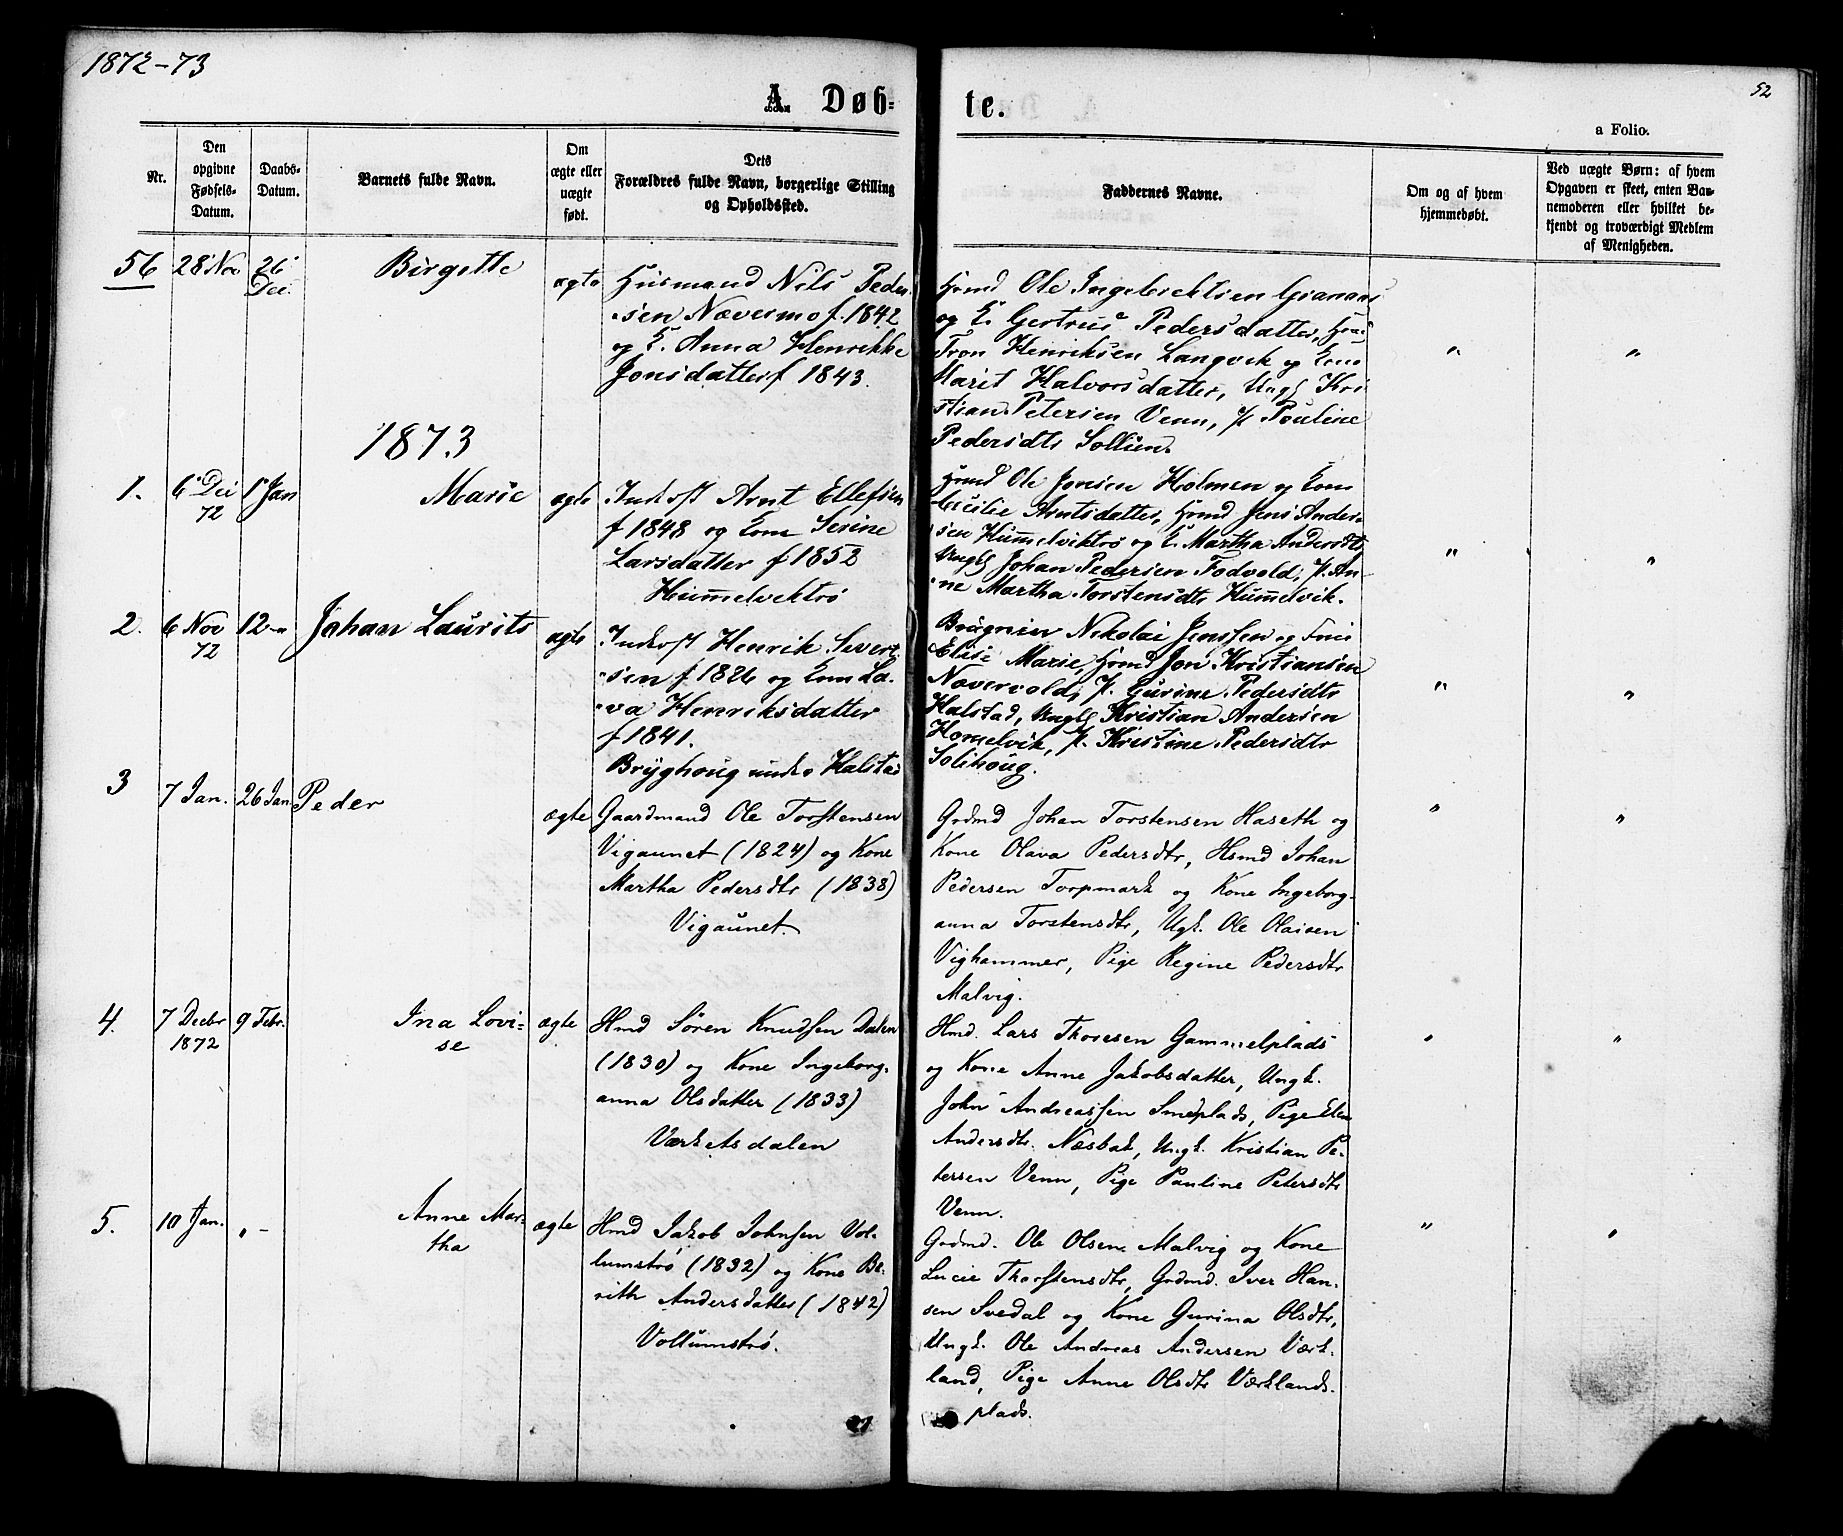 1872-73
52
A. Døb-
te.
a Folio.
Nr.
Den
opgivne
Fødsels-
Datum.
Daabs-
Datum.
Barnets fulde Navn.
Om
ægte eller
uægte
født.
Dets
Forældres fulde Navn, borgerlige Stilling
og Opholdssted.
Faddernes Navne.
Om og af hvem
hjemmedøbt.
Ved uægte Børn: af hvem
Opgaven er skeet, enten Bar-
nemoderen eller hvilket be-
kjendt og troværdigt Medlem
af Menigheden.
56
28 Nov
26
Dec.
Birgette
ægte
Husmand Nils Peder-
sen Næversmo f. 1842
og K. Anna Henrikke
Jonsdatter f 1843.
Grmd Ole Ingebrektsen Granaas
og K. Gertrud Pedersdatter,
Tron Henriksen Langvik og Kone
Marit Halvorsdatter, Ungk Kri-
stian Petersen Venn, P. Pauline
Pedersdtr Sollien.
" "
1873
1.
6 Dec
72
1 Jan
Marie
ægte
Inderst Arnt Ellefsen
f 1848 og Kone Serine
Larsdatter f 1852
Hummelviktrø
Grmd Ole Jonsen Holmen og Kone
Cecilie Arntsdatter, Grmd Jens Ander-
sen Hummelviktrø og K. Martha Andersdtr
Ungk Johan Pedersen Fodvold, P. An-
ne Martha Torstensdtr Hummelvik.
" "
2.
6 Nov
72
12 "
Johan Laurits
ægte
Inderst Henrik Sivert-
sen f. 1826 og Kone La-
va Henriksdatter
f 1841.
Bryghoug under Halstad
Brugseier Nikolai Jenssen og Frue
Elise Marie, Grmd Jon Kristiansen
Nævervold, P. Gurine Pedersdtr
Halstad, Ungk Kristian Andersen
Homelvik, P. Kristine Pedersdtr
Solihoug.
" "
3
7 Jan.
26 Jan
Peder
ægte
Gaardmand Ole Torstensen
Vigaunet (1824) og Kone
Martha Pedersdtr (1838)
Vigaunet.
Grdmd Johan Torstensen Haseth og
Kone Olava Pedersdtr, Hsmd Johan
Pedersen Torpmark og Kone Ingeborg-
anna Torstensdtr, Ugk. Ole Olaisen
Vighammer, Pige Regine Pedersdtr
Malvig.
" "
4.
7 Decbr
1872
9 Febr.
Ina Lovi-
se
ægte
Hmd Sören Knudsen Dalen
(1830) og Kone Ingeborg-
anna Olsdatter (1833)
Værketsdalen
Hmd. Lars Thoresen Gammelplads
og Kone Anne Jakobsdatter, Ungk.
John Andreassen Smedplads, Pige Elen
Andersdtr. Næsbak, Ungk. Kristian Pe-
tersen Venn, Pige Pauline Petersdtr
Venn.
" "
5.
10 Jan.
" -
Anne Mar-
tha
ægte
Hmd Jakob Johnsen Vol-
lumstrø (1832) og Kone Be-
rith Andersdatter (1842)
Vollumstrø.
Grdmd. Ole Olsen Malvig og Kone
Lucie Thorstensdtr, Grdmd. Iver Han-
sen Svedal og Kone Gurina Olsdtr,
Ungk. Ole Andreas Andersen Værk-
land, Pige Anne Olsdtr Værklands-
plads.
" "